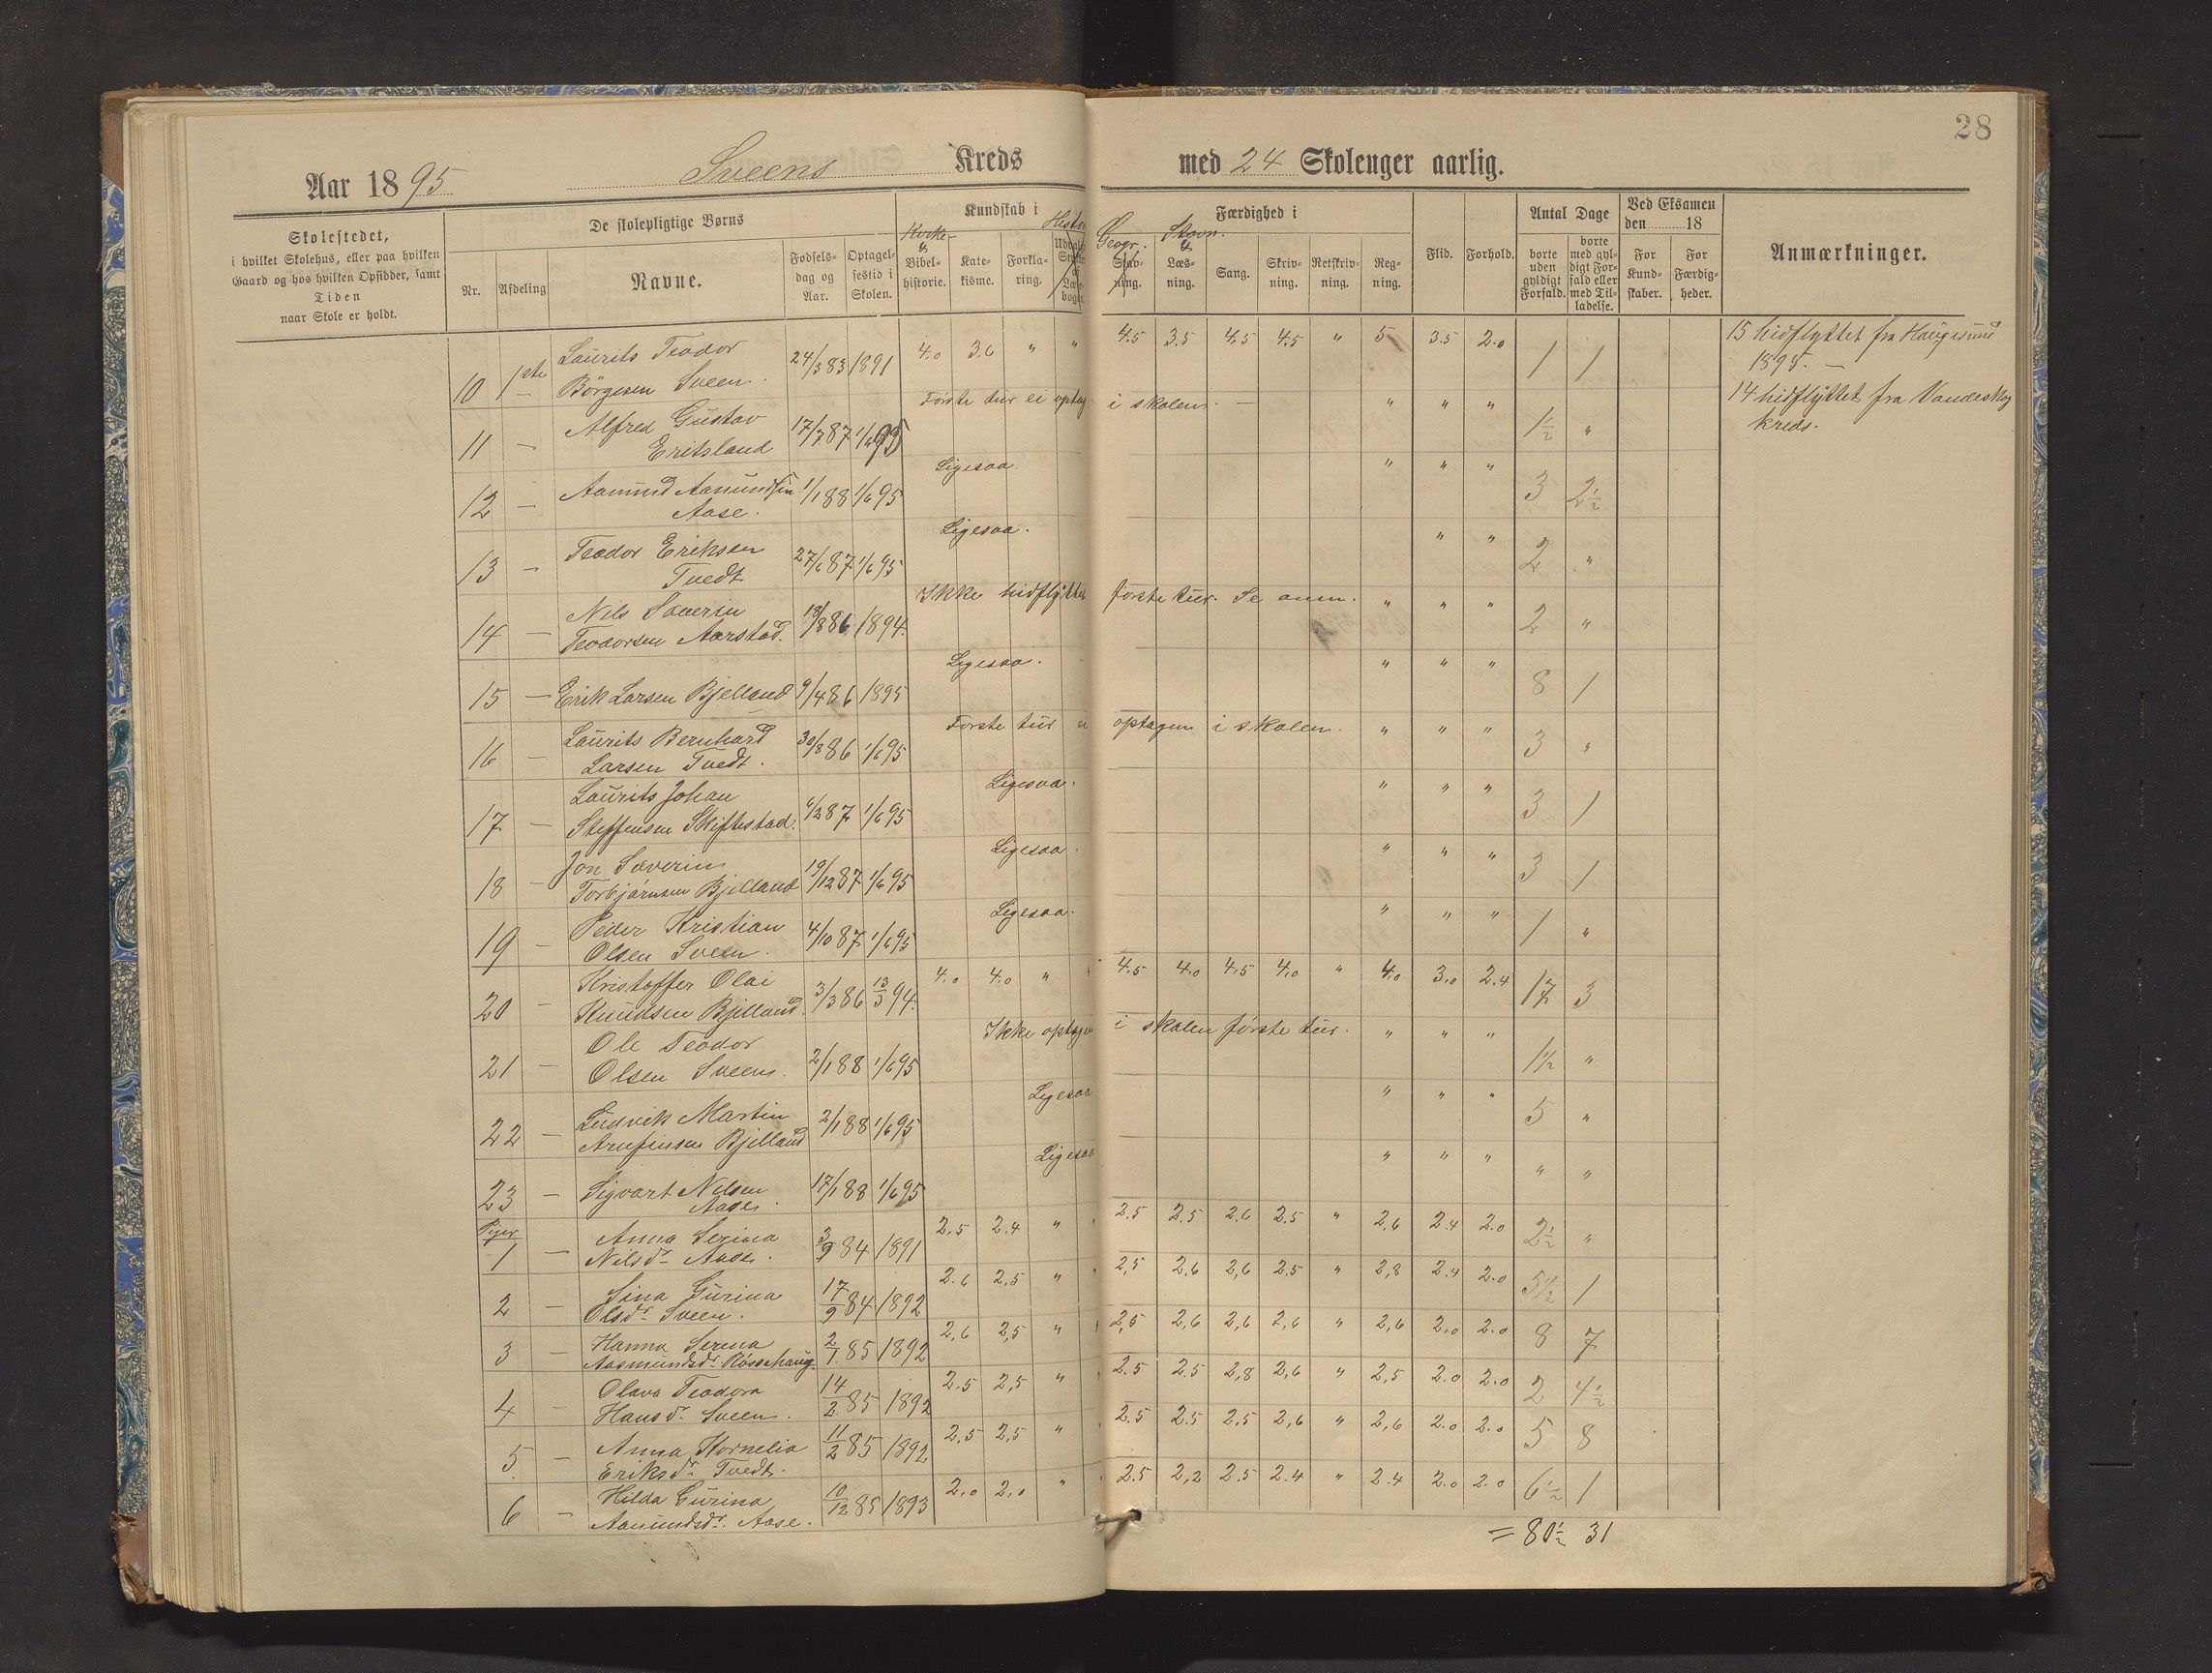 28
Aar 1895 Sveens Kreds med 24 Skoleuger aarlig.
Skolestedet,
i hvilket Skolehus, eller paa hvilken
Gaard og hos hvilken Opsidder, samt
Tiden
naar Skole er holdt.
De skolepligtige Børns
Nr. Afdeling Navne. Fødsels-dag og Aar. Optagel-sestid i Skolen.
Kundskab i
Kirke- & Bibel-historie. Kate-kisme. Forkla-ring.
Færdighed i
Geogr. Stav-ning. Stavn. & Læs-ning. Sang. Skriv-ning. Retskriv-ning. Reg-ning.
Flid. Forhold.
Antal Dage
borte uden gyldigt Forfald. borte med gyl-digt For-fald eller med Til-ladelse.
Ved Eksamen den 18
For Kund-skaber. For Færdig-heder.
Anmærkninger.
10 1ste Laurits Teodor Börgesen Sveen. 24/3 83 1891 4.0 3.6 " " 4.5 3.5 4.5 4.5 " 5 3.5 2.0 1 1
15 hidflyttet fra Haugesund
1895. —
11 — Alfred Gustav Eritsland 17/7 87 1/6 95 Förste tur ei optag i skolen. — " " " 1½ "
14 hidflyttet fra Vandeskog
kreds.
12 — Aamund Aamundsen Aase. 1/1 88 1/6 95 Ligesaa. " " " 3 2½
13 — Teodor Eriksen Tvedt 27/6 87 1/6 95 Ligesaa. " " 2 "
14 — Nils Severin Teodorsen Aarstad. 18/8 86 1894. Ikke hidflyttet förste tur. Se anm. " " " 2 "
15 — Erik Larsen Bjelland 9/4 86 1895 Ligesaa. " " " 8 1
16 — Laurits Bernhard Larsen Tvedt. 30/8 86 1/6 95 Förste tur ei optagen i skolen. " " " 3 "
17 — Laurits Johan Steffensen Skiftestad. 6/2 87 1/6 95 Ligesaa. " " " 3 1
18 — Jon Severin Torbjörnsen Bjelland 19/12 87 1/6 95 Ligesaa. " " " 3 1
19 — Peder Kristian Olsen Sveen. 4/10 87 1/6 95 Ligesaa. " " " 1 "
20 — Kristoffer Olai Knudsen Bjelland. 3/3 86 13/3 94. 4.0 4.0 " " 4.5 4.0 4.5 4.0 " 4.0 3.0 2.4 17 3
21 — Ole Teodor Olsen Sveen. 2/1 88 1/6 95 Ikke optagen i skolen förste tur. " " " 1½ "
22 — Ludvik Martin Bjelland 2/1 88 1/6 95 Ligesaa " " " 5 "
23 — Sigvart Nilsen Aase. 17/1 88 1/6 95 Ligesaa " " " " "
Piger
1 — Anna Serina Nilsdr. Aase. 3/9 84 1891 2.5 2.4 " " 2.5 2.5 2.6 2.5 " 2.6 2.4 2.0 2½ "
2 — Sina Gurina Olsdr. Sveen. 17/9 84 1892 2.6 2,5 " " 2,5 2.6 2,6 2.5 " 2,8 2.4 2.0 5½ 1
3 — Hanna Serina Aasmundsdr. Rössehaug. 2/1 85 1892 2,6 2,5 " 2,5 2,6 2,6 2,6 " 2,6 2.0 2.0 8 7
4 — Olava Teodora Hansdr. Sveen. 14/2 85 1892 2.5 2,5 " 2.5 2.5 2,8 2,6 " 2,5 2.0 2.0 2 4½
5 — Anna Kornelia Eriksdr. Tvedt. 11/2 85 1892 2,5 2,5 " 2.5 2.5 2,5 2,6 " 2,6 2.0 2.0 5 8
6 — Hilda Gurina Aamundsdr. Aase. 10/12 85 1893 2,0 2,0 " 2.5 2,2 2.5 2.4 " 2.4 2.0 2.0 6½ 1
= 80½ 31